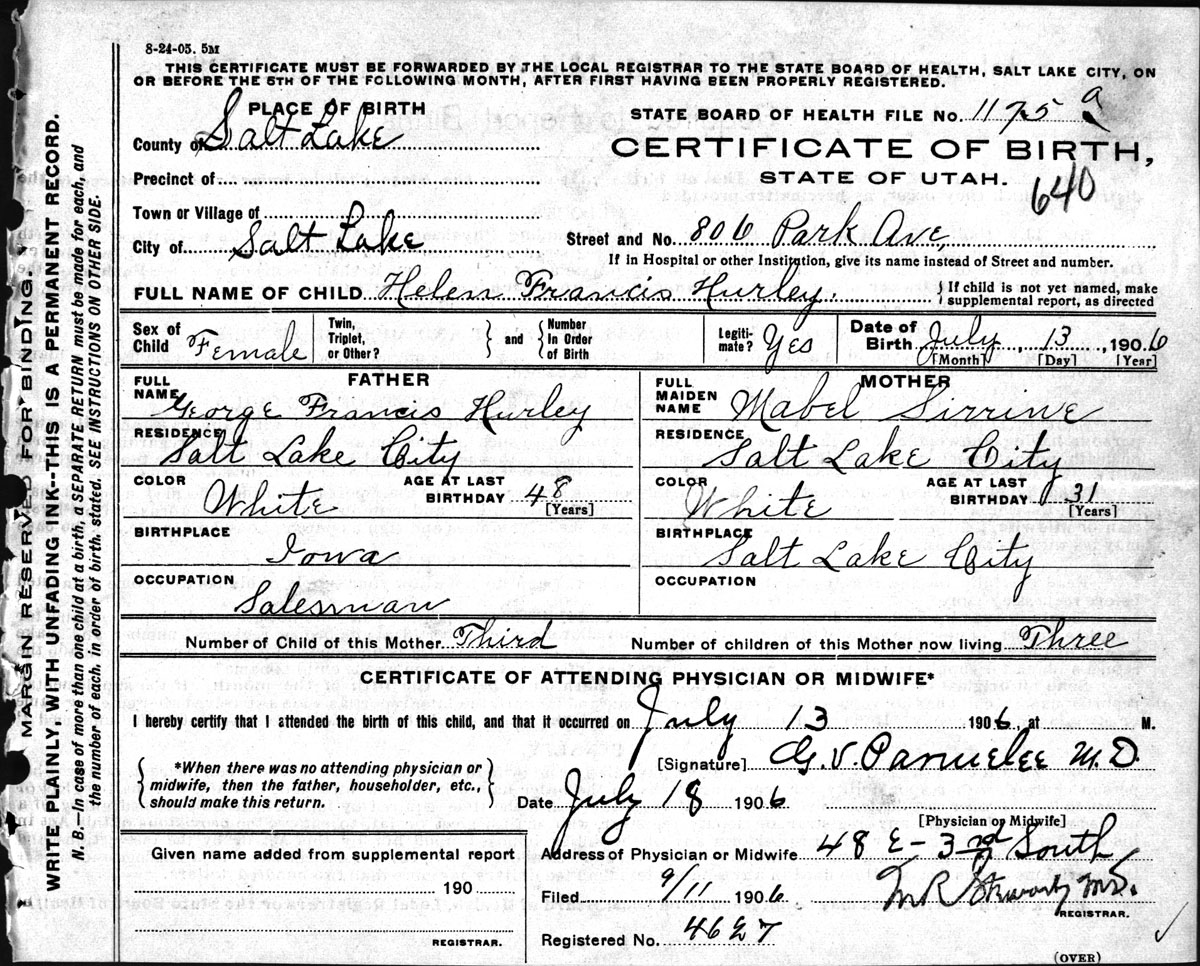 8-24-05. 5M
THIS CERTIFICATE MUST BE FORWARDED BY THE LOCAL REGISTRAR TO THE STATE BOARD OF HEALTH, SALT LAKE CITY, ON
OR BEFORE THE 5TH OF THE FOLLOWING MONTH, AFTER FIRST HAVING BEEN PROPERLY REGISTERED.
PLACE OF BIRTH
County of Salt Lake
Precinct of
Town or Village of
City of Salt Lake
STATE BOARD OF HEALTH FILE No. 1175 a
CERTIFICATE OF BIRTH,
STATE OF UTAH.
640
Street and No. 806 Park Ave,
If in Hospital or other Institution, give its name instead of Street and number.
FULL NAME OF CHILD Helen Francis Hurley. { If child is not yet named, make
supplemental report, as directed
Sex of Child Female
Twin, Triplet, or Other? } and { Number In Order of Birth
Legiti-mate? Yes
Date of Birth July, 13, 1906
[Month] [Day] [Year]
FATHER
FULL NAME George Francis Hurley
RESIDENCE Salt Lake City
COLOR White AGE AT LAST BIRTHDAY 48 [Years]
BIRTHPLACE Iowa
OCCUPATION Salesman
MOTHER
FULL MAIDEN NAME Mabel Sirrine
RESIDENCE Salt Lake City
COLOR White AGE AT LAST BIRTHDAY 31 [Years]
BIRTHPLACE Salt Lake City
OCCUPATION
Number of Child of this Mother Third Number of children of this Mother now living Three
CERTIFICATE OF ATTENDING PHYSICIAN OR MIDWIFE*
I hereby certify that I attended the birth of this child, and that it occurred on July 13 1906, at M.
{ *When there was no attending physician or
midwife, then the father, householder, etc.,
should make this return. }
[Signature] G. V. M.D.
Date July 18 1906
[Physician or Midwife]
Address of Physician or Midwife 48 E - 3rd South
Filed 9/11 1906
REGISTRAR.
Registered No. 4627
Given name added from supplemental report
190
REGISTRAR.
(OVER)
MARGIN RESERVED FOR BINDING.
WRITE PLAINLY, WITH UNFADING INK--THIS IS A PERMANENT RECORD.
N. B.—In case of more than one child at a birth, a SEPARATE RETURN must be made for each, and
the number of each, in order of birth, stated. SEE INSTRUCTIONS ON OTHER SIDE.